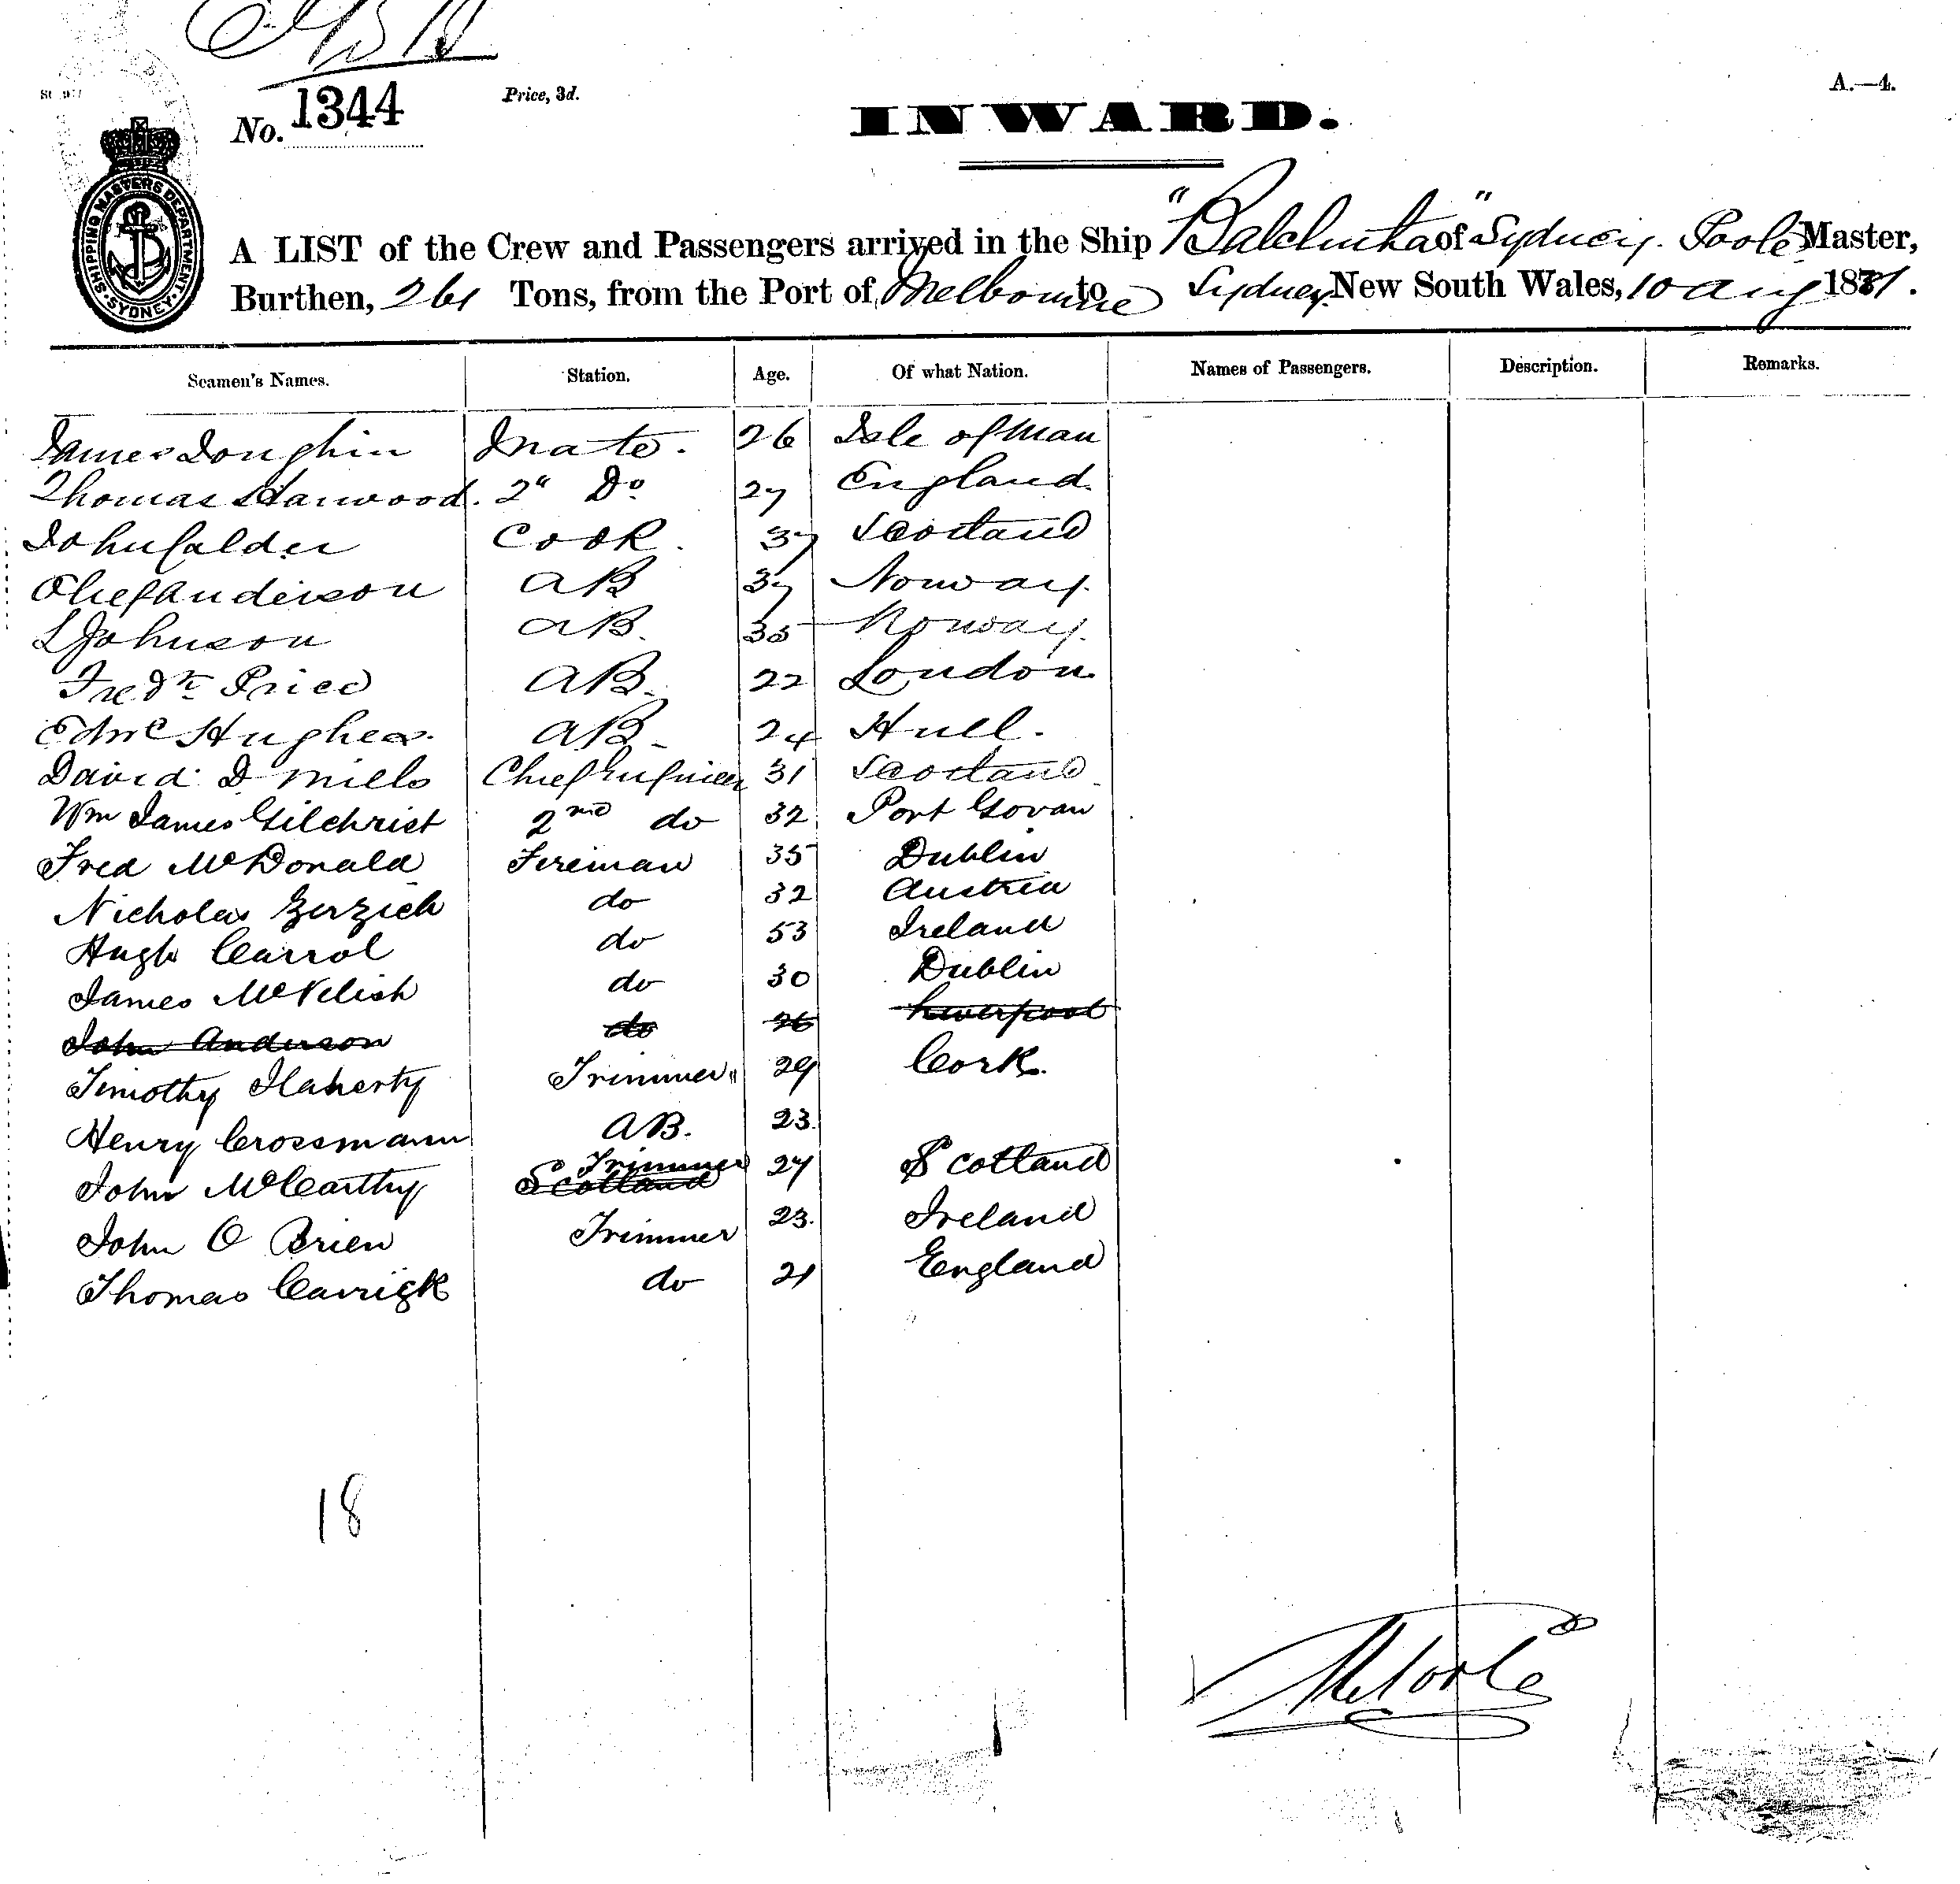 No. 1344
Price, 3d.
A.—4.
INWARD.
SHIPPING MASTERS DEPARTMENT. SYDNEY.
A LIST of the Crew and Passengers arrived in the Ship " " of Sydney. Poole Master,
Burthen, 261 Tons, from the Port of Melbourne to Sydney New South Wales, 10 Aug 1881.
Seamen's Names. Station. Age. Of what Nation. Names of Passengers. Description. Remarks.
James Doughin Mate. 26 Isle of Man
Thomas Harwood. 2" Do 27 England.
John Calder Cook. 37 Scotland
Olief Anderson AB 37 Norway.
L Johnson AB. 35 Norway.
Fredk Price AB. 22 London
Edmd Hughes. AB 24 Hull.
David D Mills Chief Engineer 31 Scotland
Wm James Gilchrist 2nd do 32 Port Govan
Fred McDonald Fireman 35 Dublin
Nicholas Zerzich do 32 Austria
Hugh Carrol do 53 Ireland
James McVelish do 30 Dublin
John Anderson do 26 Liverpool
Timothy Flaherty Trimmer 29 Cork.
Henry Crossmann AB. 23.
John McCarthy Trimmer 27 Scotland
Scotland
John O Brien Trimmer 23. Ireland
Thomas Carrick do 21 England
18